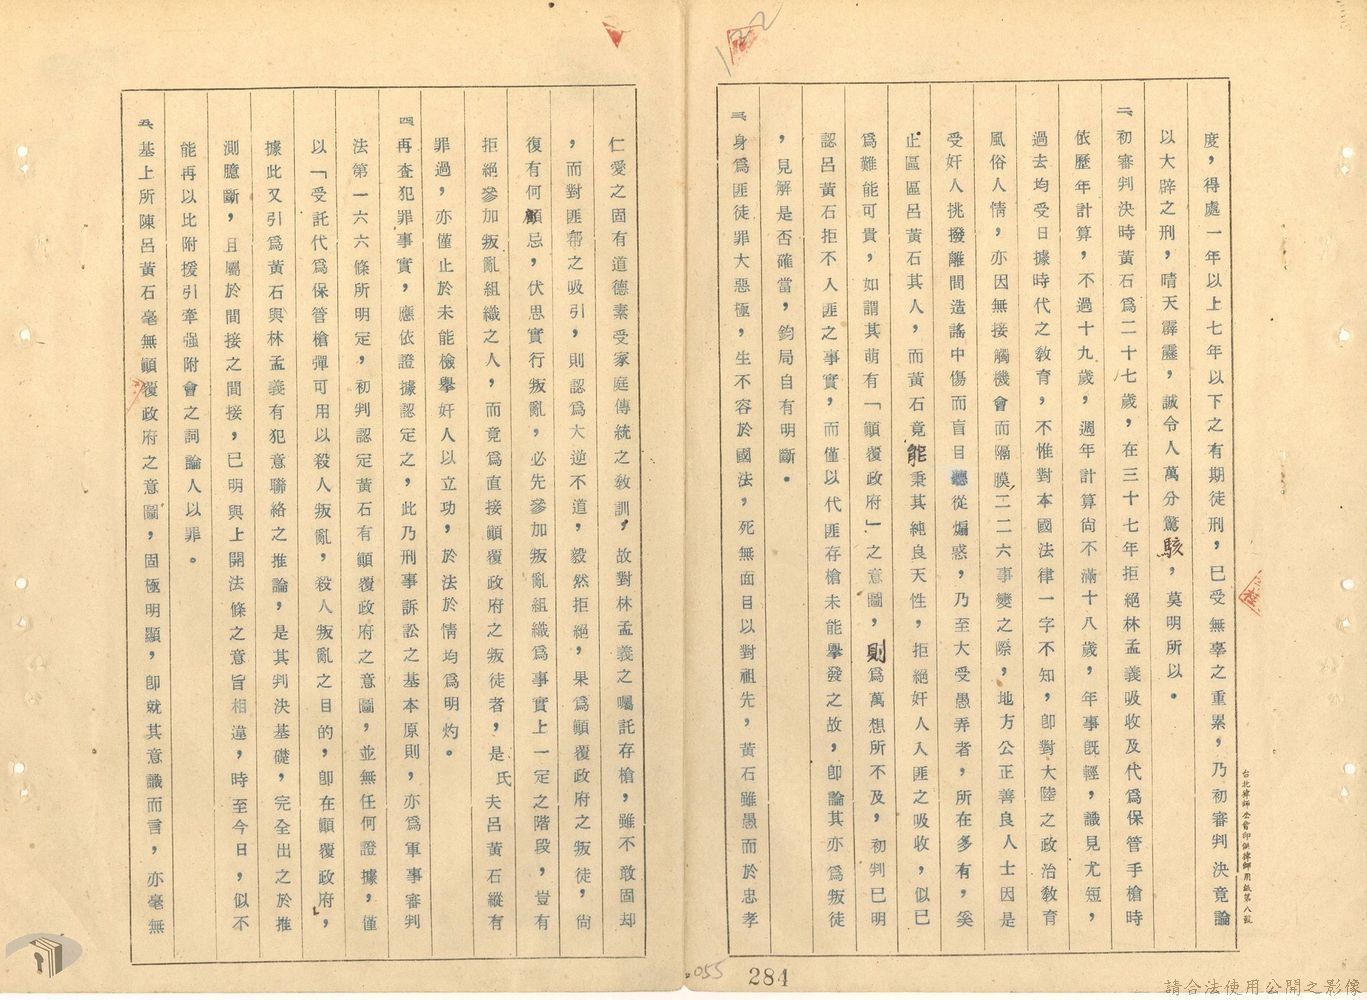 度，得處一年以上七年以下之有期徒刑，已受無辜之重累，乃初審判決竟論
以大辟之刑，晴天霹靂，誠令人萬分驚駭，莫明所以。
二、初審判決時黃石爲二十七歲，在三十七年拒絕林孟義吸收及代爲保管手槍時
依歷年計算，不過十九歲，週年計算尙不滿十八歲，年事旣輕，識見尤短，
過去均受日據時代之敎育，不惟對本國法律一字不知，卽對大陸之政治敎育
風俗人情，亦因無接觸機會而隔膜，二二六事變之際，地方公正善良人士因是
受奸人挑撥離間造謠中傷而盲目聽從煽惑，乃至大受愚弄者，所在多有，奚
止區區呂黃石其人，而黃石竟能秉其純良天性，拒絕奸人入匪之吸收，似已
爲難能可貴，如謂其萌有「顚覆政府」之意圖，則爲萬想所不及，初判已明
認呂黃石拒不入匪之事實，而僅以代匪存槍未能舉發之故，卽論其亦爲叛徒
，見解是否確當，鈞局自有明斷。
三、身爲匪徒罪大惡極，生不容於國法，死無面目以對祖先，黃石雖愚而於忠孝
仁愛之固有道德素受家庭傳統之敎訓，故對林孟義之囑託存槍，雖不敢固却
，而對匪幫之吸引，則認爲大逆不道，毅然拒絕，果爲顚覆政府之叛徒，尙
復有何顧忌，伏思實行叛亂，必先參加叛亂組織爲事實上一定之階段，豈有
拒絕參加叛亂組織之人，而竟爲直接顚覆政府之叛徒者，是氏夫呂黃石縱有
罪過，亦僅止於未能檢舉奸人以立功，於法於情均爲明灼。
四、再查犯罪事實，應依證據認定之，此乃刑事訴訟之基本原則，亦爲軍事審判
法第一六六條所明定，初判認定黃石有顚覆政府之意圖，並無任何證據，僅
以「受託代爲保管槍彈可用以殺人叛亂，殺人叛亂之目的，卽在顚覆政府」，
據此又引爲黃石與林孟義有犯意聯絡之推論，是其判決基礎，完全出之於推
測臆斷，且屬於間接之間接，已明與上開法條之意旨相違，時至今日，似不
能再以比附援引牽强附會之詞論人以罪。
五、基上所陳呂黃石毫無顚覆政府之意圖，固極明顯，卽就其意識而言，亦毫無
台北律師公會印製律師用紙第八號
132
055
284
請合法使用公開之影像